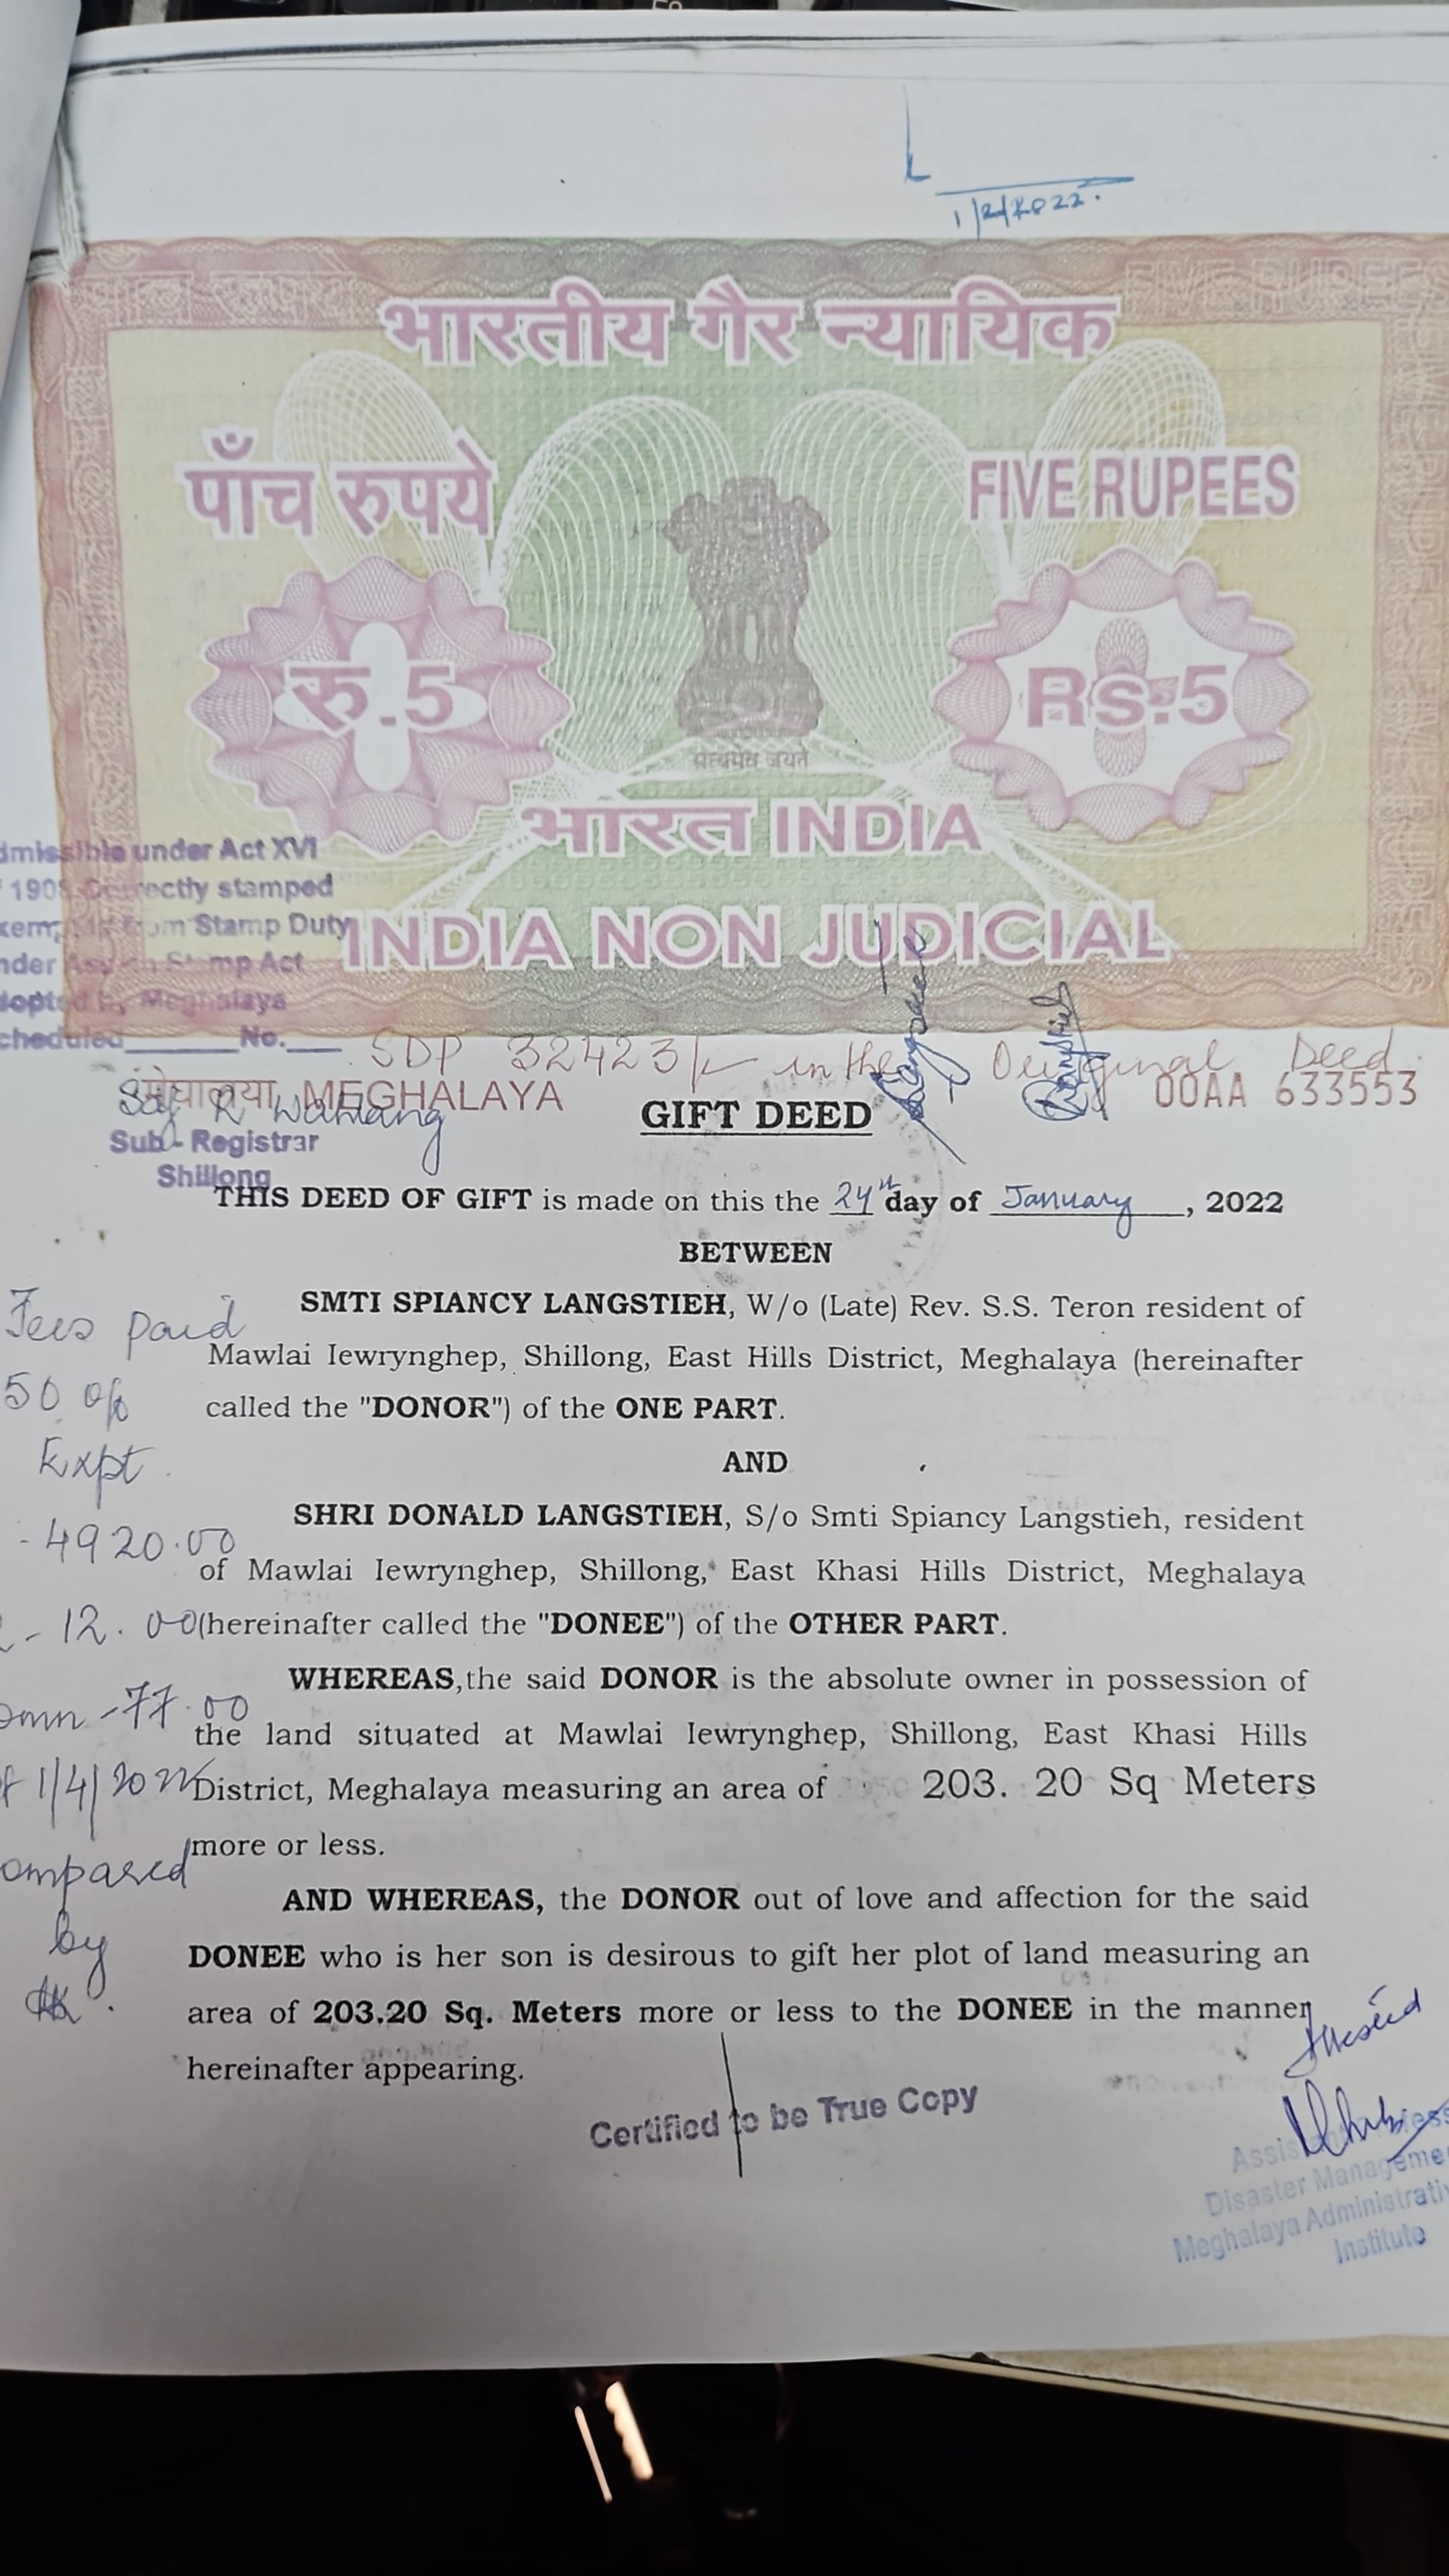 1/2/2022.
भारतीय गैर न्यायिक
पाँच रुपये
FIVE RUPEES
रु.5
Rs.5
सत्यमेव जयते
भारत INDIA
INDIA NON JUDICIAL
under Act XVI
stamped
Stamp Duty
Act
Meghalaya
No.
SDP 32423/- in the Original Deed.
मेघालया MEGHALAYA
00AA 633553
Sub - Registrar
Shillong
GIFT DEED
THIS DEED OF GIFT is made on this the 24th day of January, 2022
BETWEEN
SMTI SPIANCY LANGSTIEH, W/o (Late) Rev. S.S. Teron resident of
Mawlai Iewrynghep, Shillong, East Hills District, Meghalaya (hereinafter
called the "DONOR") of the ONE PART.
AND
SHRI DONALD LANGSTIEH, S/o Smti Spiancy Langstieh, resident
of Mawlai Iewrynghep, Shillong, East Khasi Hills District, Meghalaya
(hereinafter called the "DONEE") of the OTHER PART.
WHEREAS,the said DONOR is the absolute owner in possession of
the land situated at Mawlai Iewrynghep, Shillong, East Khasi Hills
District, Meghalaya measuring an area of 203. 20 Sq Meters
more or less.
AND WHEREAS, the DONOR out of love and affection for the said
DONEE who is her son is desirous to gift her plot of land measuring an
area of 203.20 Sq. Meters more or less to the DONEE in the manner
hereinafter appearing.
Fees paid
Expt
- 4920.00
- 12.00
- 77.00
by
Certified to be True Copy
Disaster
Meghalaya
Institute